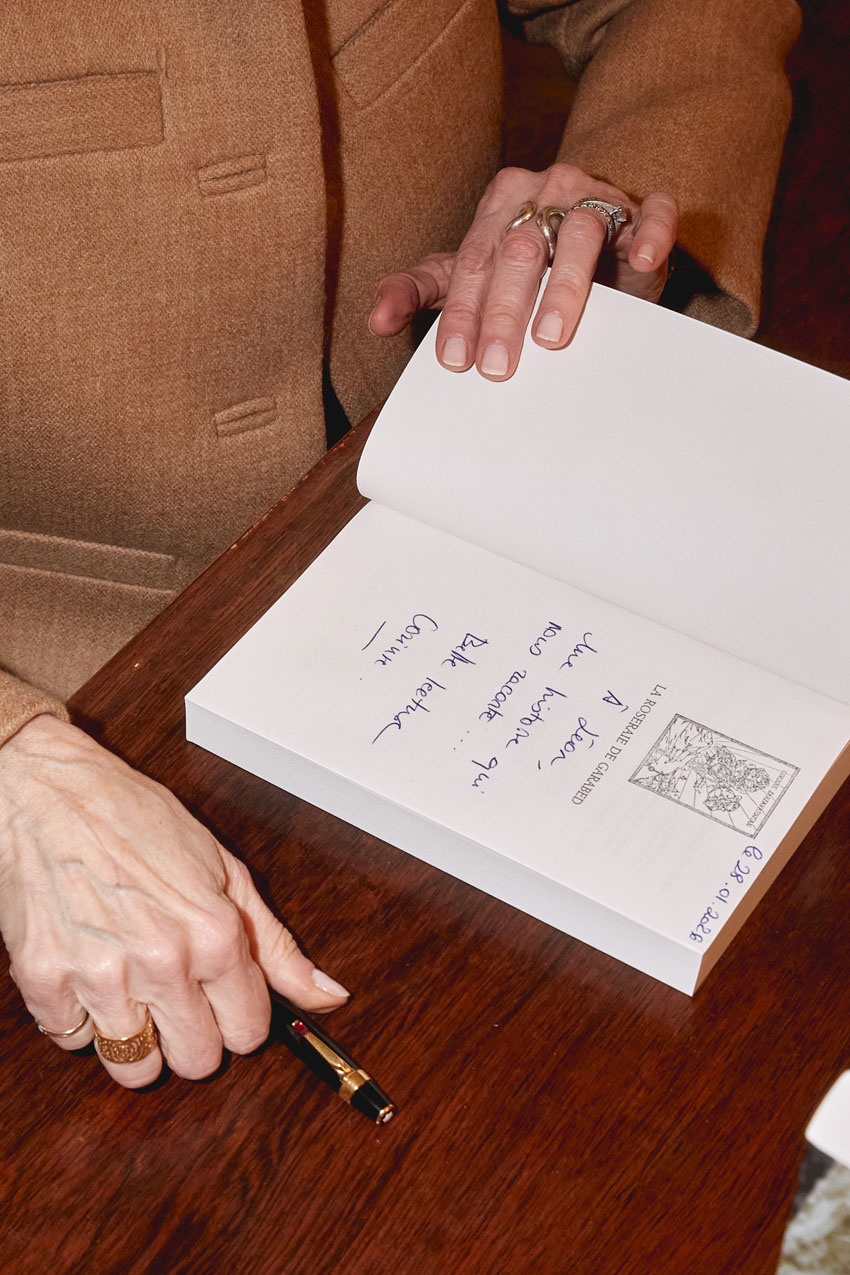 le 28.01.2026
LA ROSERAIE DE GARABED
À Léon,
Une histoire qui
nous raconte...
Belle lecture
Corinne